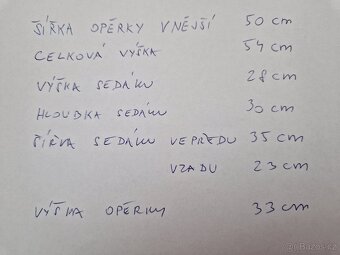 ŠÍŘKA OPĚRKY VNĚJŠÍ 50 cm
CELKOVÁ VÝŠKA 54 cm
VÝŠKA SEDÁKU 28 cm
HLOUBKA SEDÁKU 30 cm
ŠÍŘKA SEDÁKU VEPŘEDU 35 cm
VZADU 23 cm
VÝŠKA OPĚRKY 33 cm